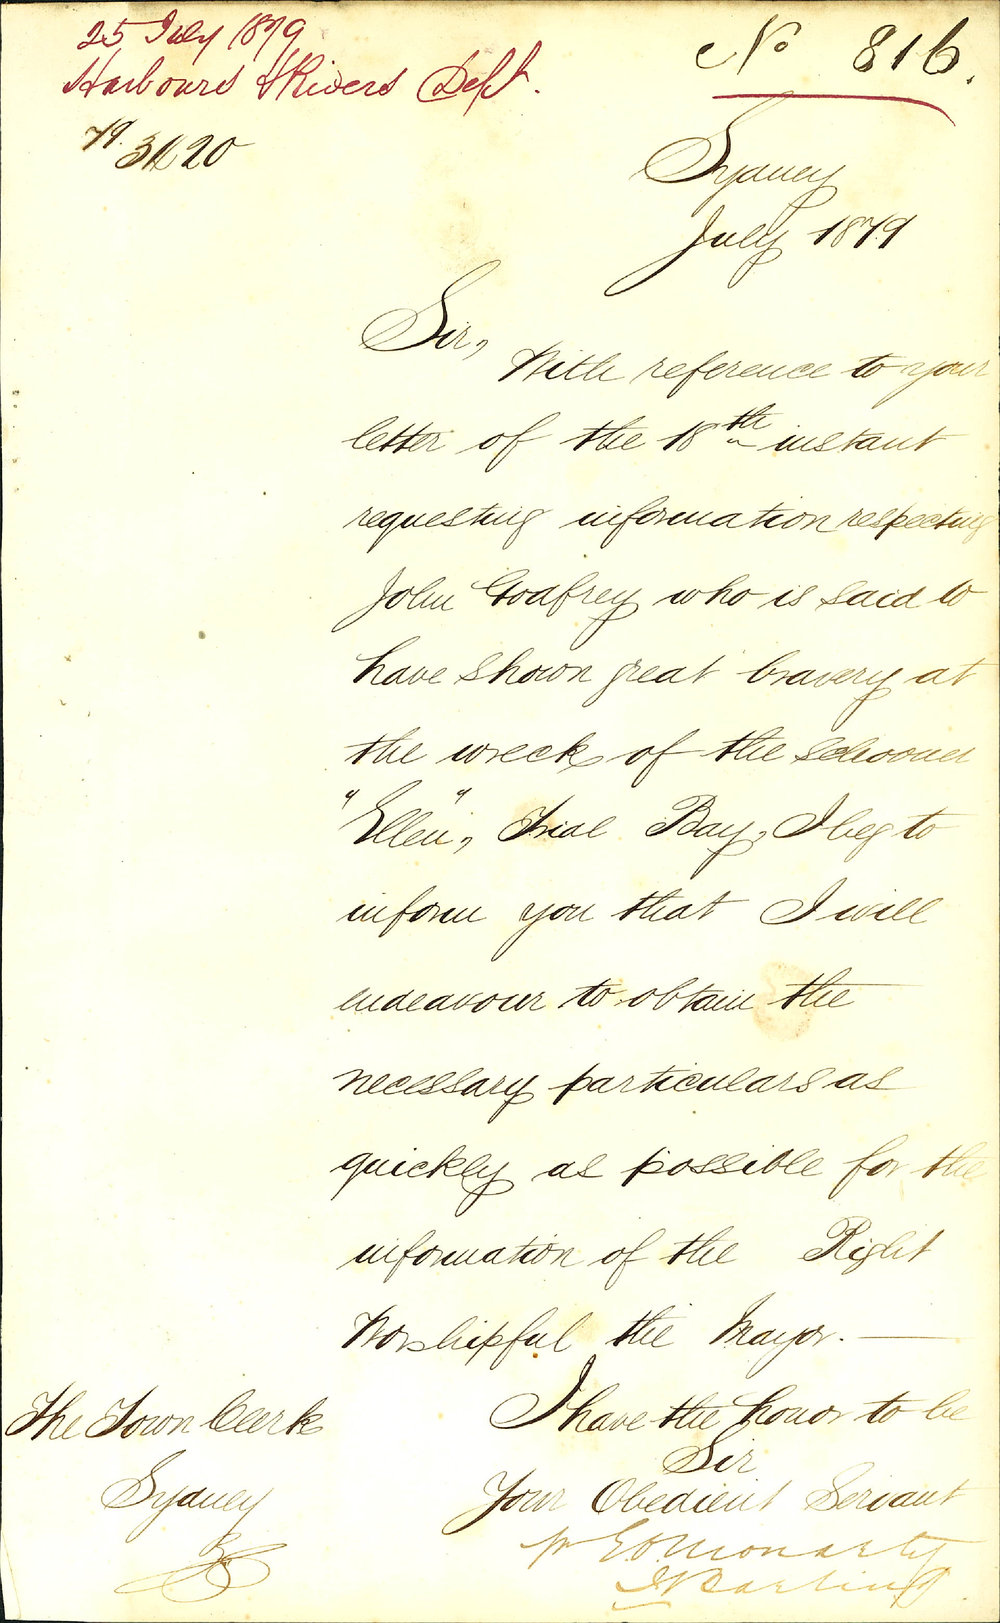 25 July 1879
Harbours & Rivers Dept.
No 816.
79.
Sydney
July 1879
Sir,
With reference to your
letter of the 18th instant
requesting information respecting
John Godfrey who is said to
have shown great bravery at
the wreck of the schooner
"Ellen", Trial Bay, I beg to
inform you that I will
endeavour to obtain the
necessary particulars as
quickly as possible for the
information of the Right
Worshipful the Mayor.
I have the honor to be
Sir
Your Obedient Servant
The Town Clerk
Sydney